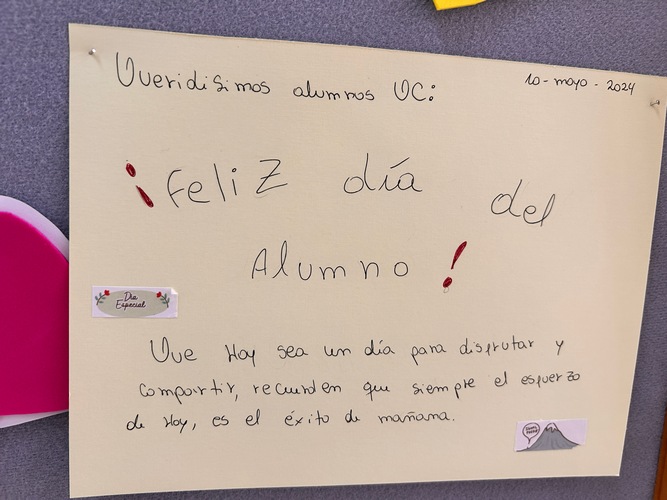 Queridisimos alumnos UC:
10-mayo-2024
¡Feliz día del
Alumno!
Día
Especial
Que Hoy sea un día para disfrutar y
compartir, recuerden que siempre el esfuerzo
de Hoy, es el éxito de mañana.